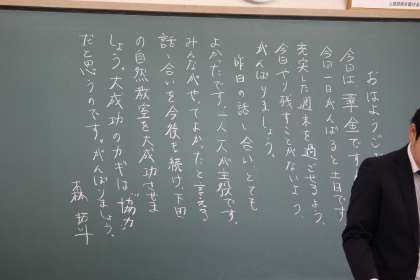 おはようご
今日は華金です
今日一日がんばると土日です
充実した週末を過ごせるよう、
今日やり残すことがないよう、
がんばりましょう。
昨日の話し合いとても
よかったです。一人一人が主役です。
みんながやってよかったと言える
話し合いを今後も続け、下田
の自然教室を大成功させま
しょう。大成功のカギは「協力」
だと思うのです。がんばりましょう。
森 拓斗